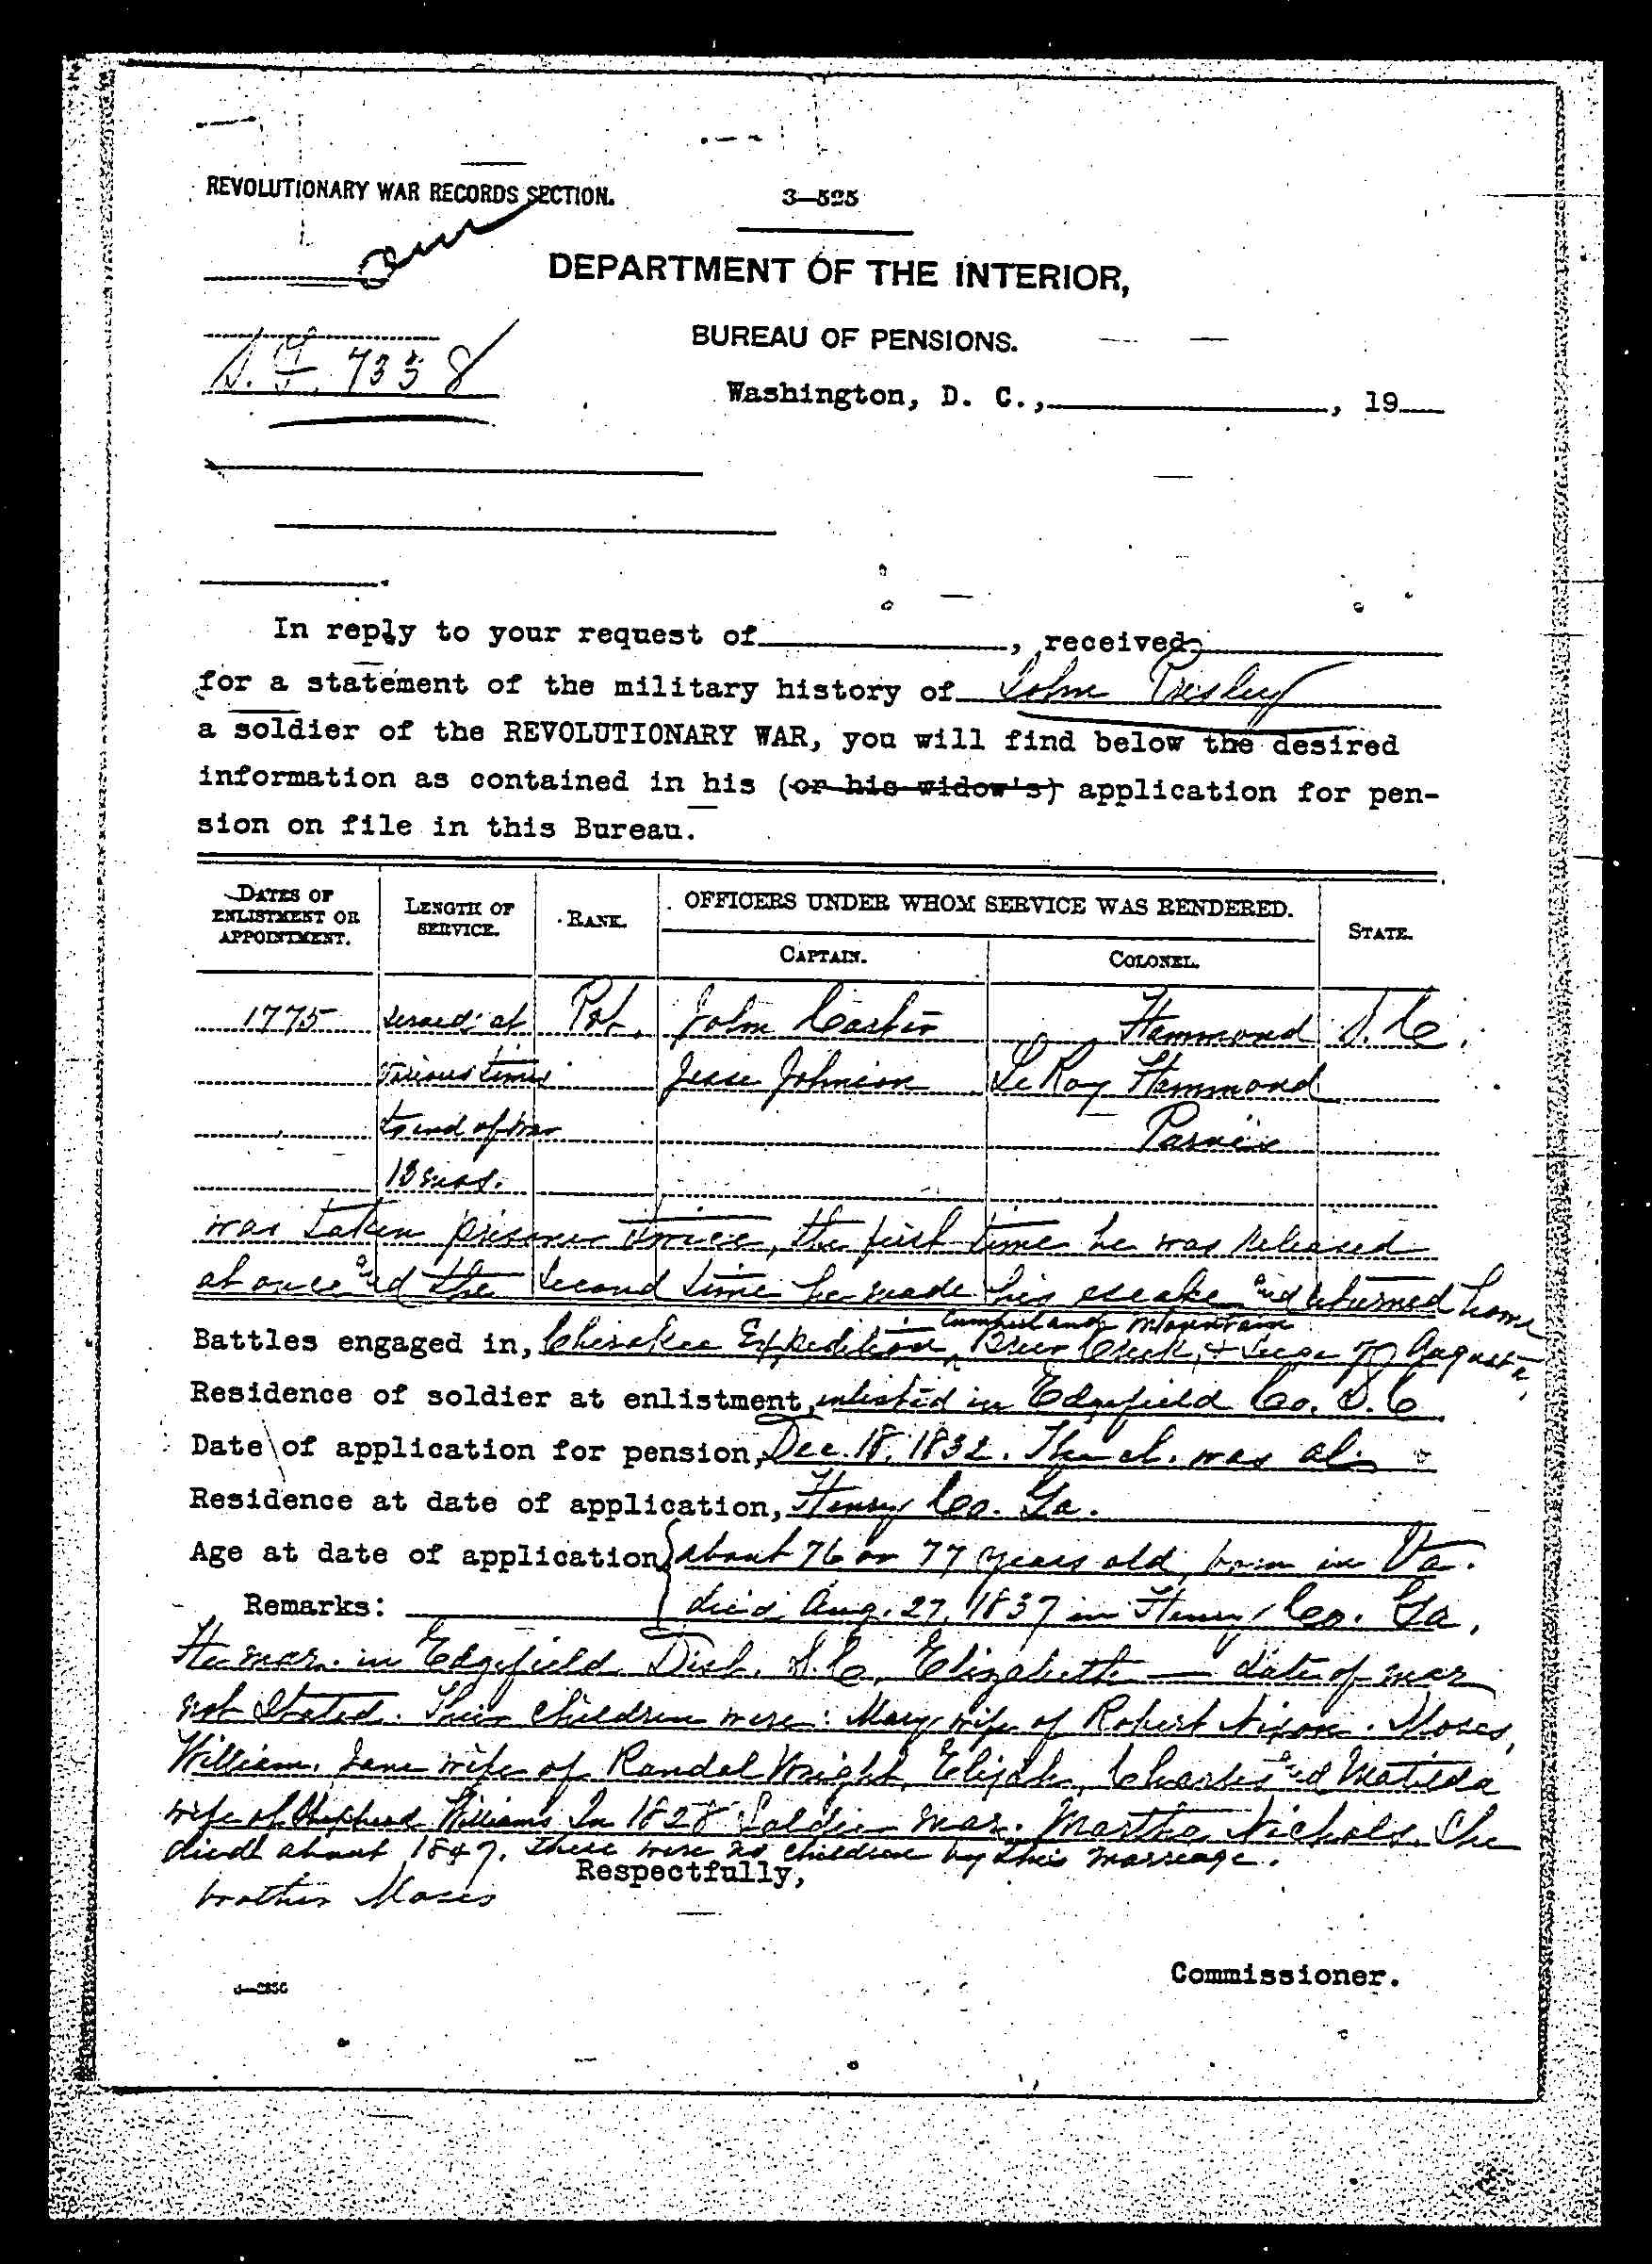 REVOLUTIONARY WAR RECORDS SECTION.
3—525
DEPARTMENT OF THE INTERIOR,
BUREAU OF PENSIONS.
S. F. 7338
Washington, D. C., , 19
In reply to your request of , received
for a statement of the military history of John Presley
a soldier of the REVOLUTIONARY WAR, you will find below the desired
information as contained in his (or his widow's) application for pen-
sion on file in this Bureau.
DATES OF ENLISTMENT OR APPOINTMENT. LENGTH OF SERVICE. RANK. OFFICERS UNDER WHOM SERVICE WAS RENDERED. STATE.
CAPTAIN. COLONEL.
1775 served at Pvt. John Carter Hammond S.C.
various times Jesse Johnson LeRoy Hammond
to end of war
18 mos.
was taken prisoner twice, the first time he was released
at once and the second time he made his escape and returned home
Cumberland Mountain
Battles engaged in, Cherokee Expedition, Brier Creek, & Siege of Augusta,
Residence of soldier at enlistment, enlisted in Edgefield Co. S.C.
Date of application for pension, Dec. 18, 1832. The cl. was al.
Residence at date of application, Henry Co. Ga.
Age at date of application, about 76 or 77 years old, born in Va.
Remarks: died Aug. 27, 1837 in Henry Co. Ga.
He mar. in Edgefield Dist. S.C. Elizabeth — date of mar
not stated. Their children were: Mary wife of Robert Nixon. Moses,
William, Jane wife of Randal Wright, Elijah, Charles and Matilda
wife of Shepherd Williams In 1828 Soldier mar. Martha Nichols. She
died about 1847. There were no children by this marriage.
Respectfully,
brother Moses
Commissioner.